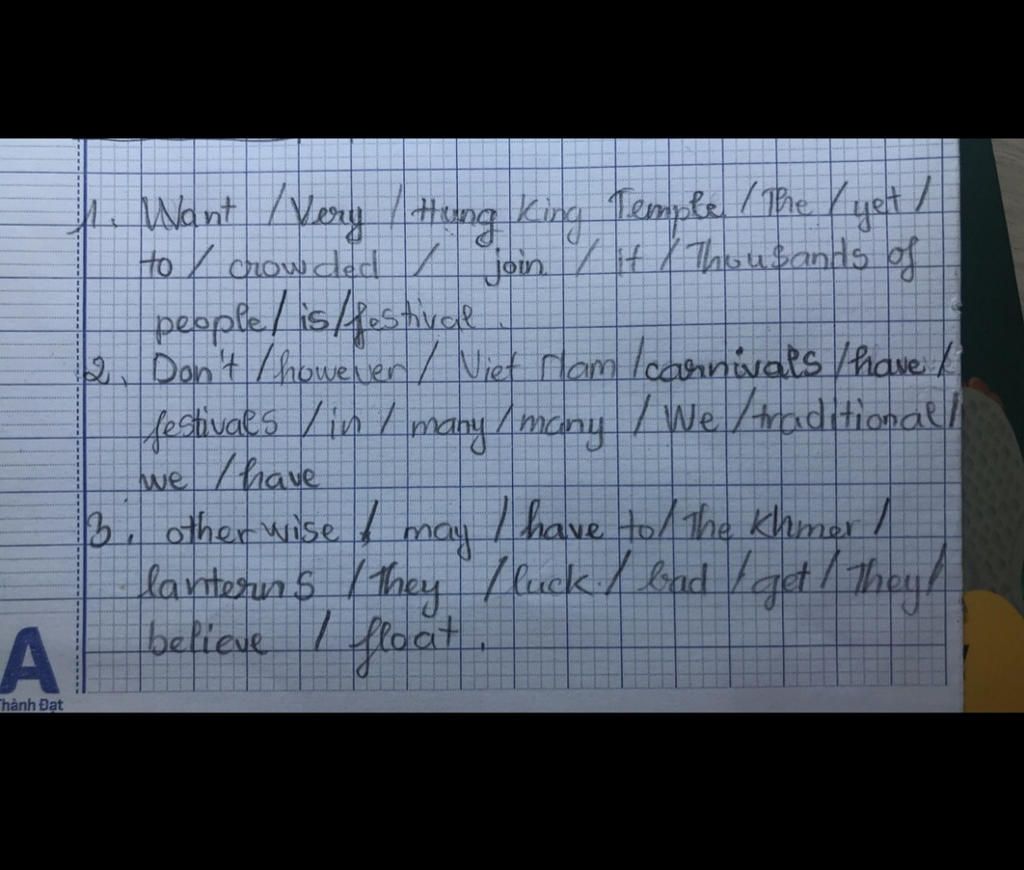 1. Want / Very / Hung King Temple / The / yet /
to / crowded / join / it / Thousands of
people / is / festival.
2. Don't / however / Viet Nam / carnivals / have /
festivals / in / many / many / We / traditional /
we / have
3. otherwise / may / have to / The Khmer /
lanterns / They / luck / bad / get / They /
believe / float.
A
Thành Đạt